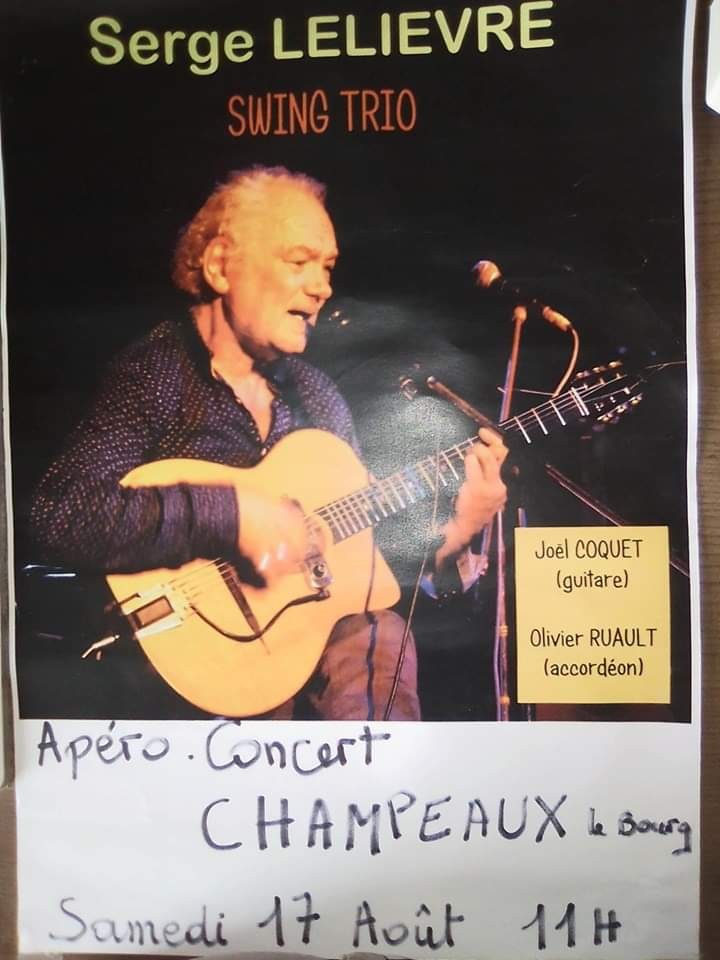 Serge LELIEVRE
SWING TRIO
Joël COQUET
(guitare)
Olivier RUAULT
(accordéon)
Apéro. Concert
CHAMPEAUX le Bourg
Samedi 17 Août 11H